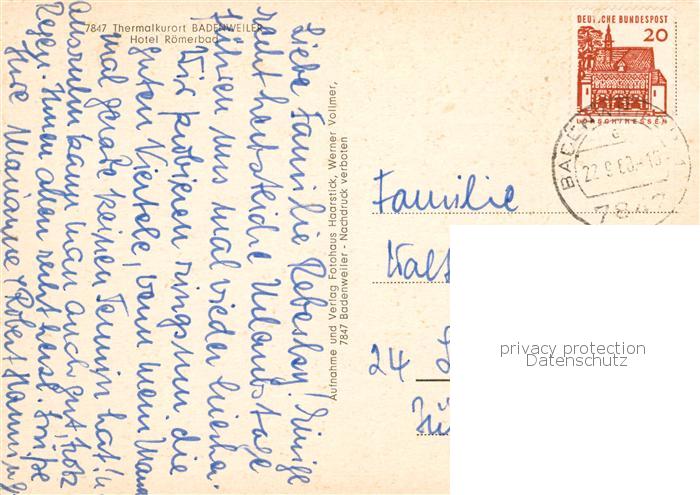 7847 Thermalkurort BADENWEILER
Hotel Römerbad
Liebe Familie Rebeslay! Einige
recht herbstliche Urlaubstage
führen uns mal wieder hierher.
Wir probieren ringsum die
guten Viertele, wenn mein Mann
mal gerade keinen Termin hat! u.
ausruhen kann man auch gut, trotz
Regen. Ihnen allen recht herzl. Grüße
Ihre Marianne & Robert
Aufnahme und Verlag Fotohaus Haarstick, Werner Vollmer,
7847 Badenweiler - Nachdruck verboten
DEUTSCHE BUNDESPOST
20
LORSCH/HESSEN
22.9.
7847
Familie
24
privacy protection
Datenschutz